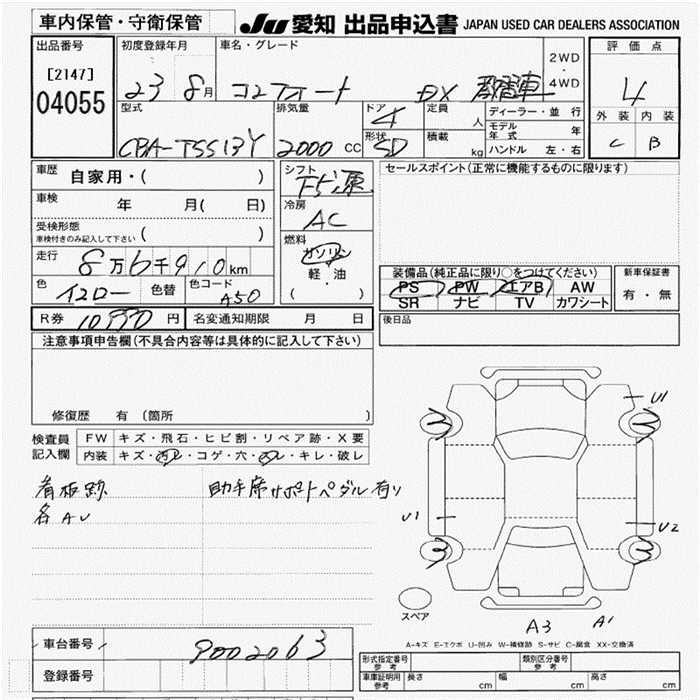 車内保管・守衛保管
JU 愛知 出品申込書 JAPAN USED CAR DEALERS ASSOCIATION
出品番号 初度登録年月 車名・グレード 2WD・4WD 評価点
[2147]
04055
23 8月 コンフォート DX 4
型式 排気量 ドア 4 定員 人 ディーラー・並行 外装 内装
モデル年式 年
CBA-TSS13Y 2000 CC 形状 SD 積載 kg ハンドル 左・右 C B
車歴 自家用・( )
シフト
セールスポイント(正常に機能するものに限ります)
車検 年 月( 日)
冷房 AC
受検形態
車検付きのみ記入して下さい ( )
燃料 ガソリン
軽・油
( )
走行 8万6千910km
色 イエロー 色替 色コード A50
装備品(純正品に限り○をつけてください) 新車保証書
PS PW エアB AW 有・無
SR ナビ TV カワシート
R券 10,990円 名変通知期限 月 日
後日品
注意事項申告欄(不具合内容等は具体的に記入して下さい)
修復歴 有 (箇所 )
検査員記入欄 FW キズ・飛石・ヒビ割・リペア跡・X要
内装 キズ・汚レ・コゲ・穴・スレ・キレ・破レ
看板跡 助手席サポートペダル有り
各AU
U1
3 3
U1 U2
3 3
スペア
A3 A1
A-キズ E-エクボ U-凹み W-補修跡 S-サビ C-腐食 XX-交換済
車台番号 9002063
登録番号
形式指定番号 参考 類別区分番号 参考
車庫証明用 参考 長さ cm 幅 cm 高さ cm